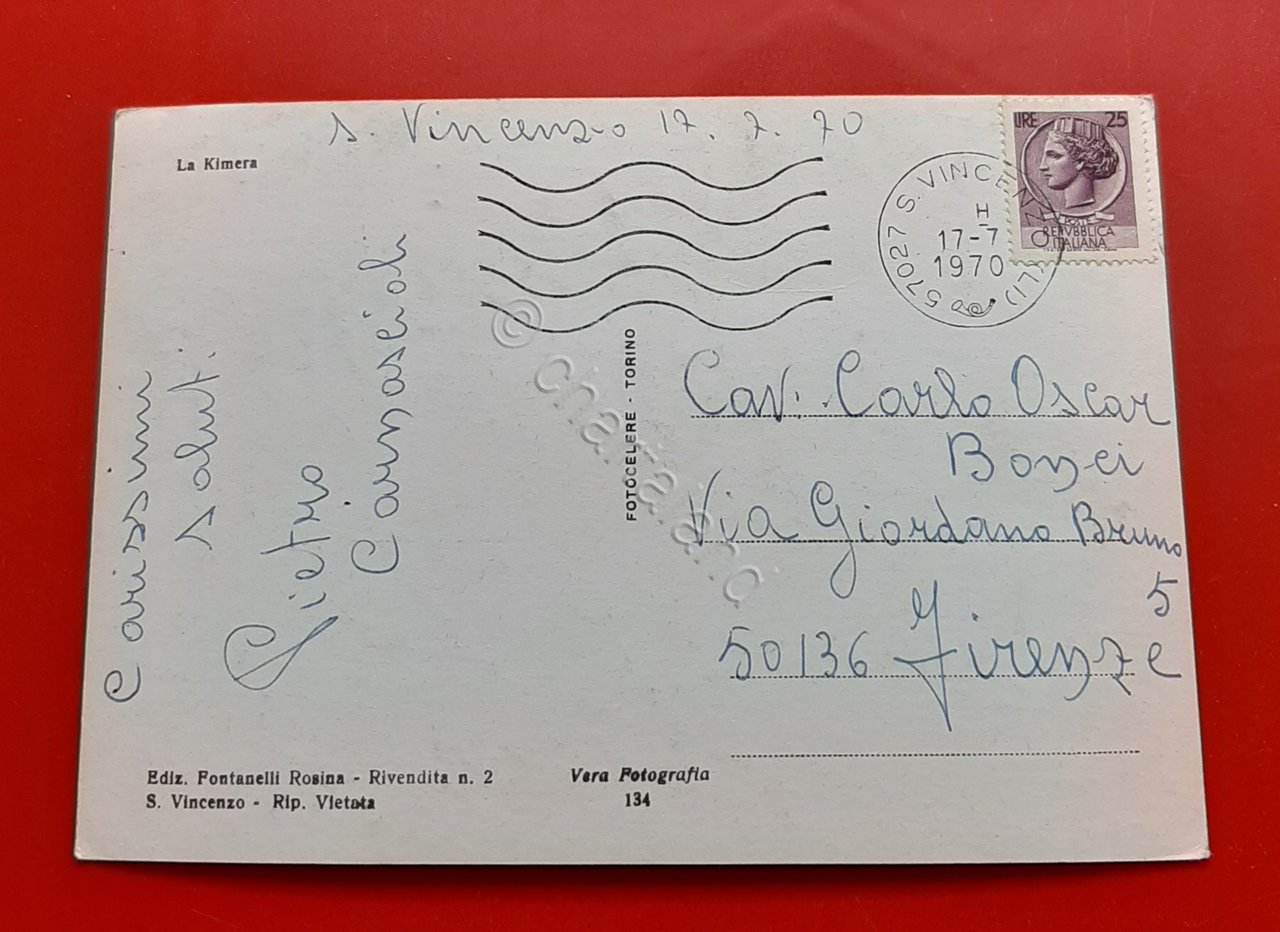 s. Vincenzo 17. 7. 70
La Kimera
LIRE 25
POSTE
REPVBBLICA
ITALIANA
57027 S. VINCENZO (LI)
H
17-7
1970
Carissimi
saluti.
Pietro
FOTOCELERE - TORINO
Cav. Carlo Oscar
Via Giordano Bruno
5
50136 Firenze
Ediz. Fontanelli Rosina - Rivendita n. 2
S. Vincenzo - Rip. Vietata
Vera Fotografia
134
© charialand